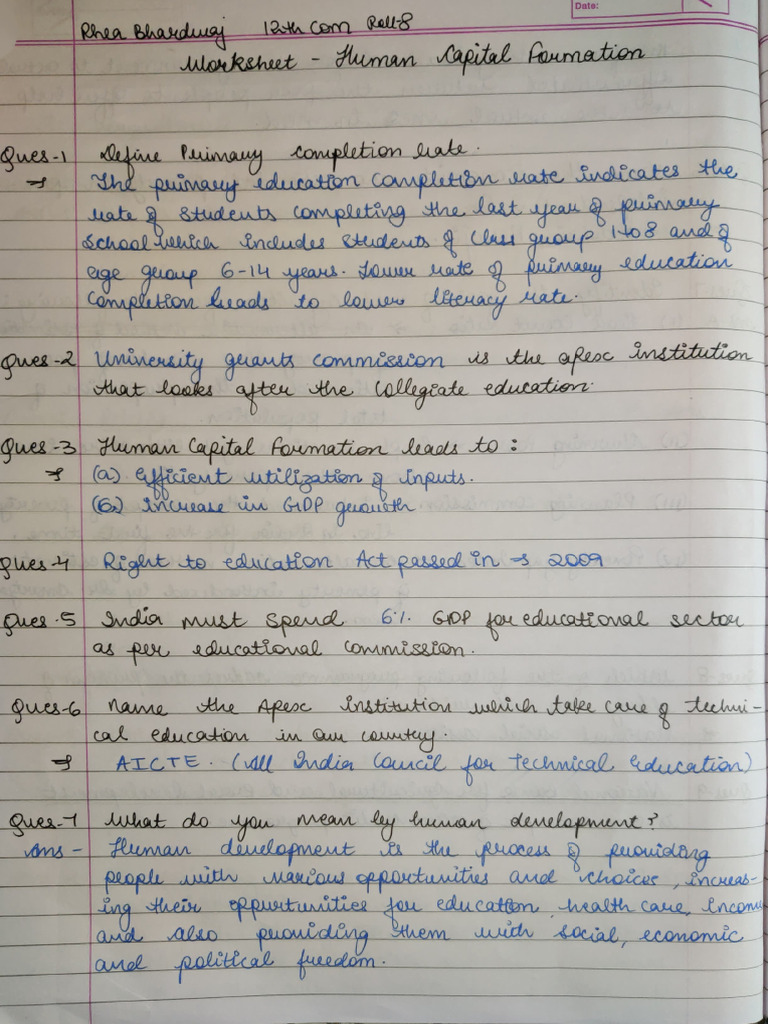 Date:
Rhea Bhardwaj 12th Com Roll-8
Worksheet - Human Capital Formation
Ques-1 Define Primary completion rate.
→ The primary education completion rate indicates the
rate of students completing the last year of primary
school which includes students of class group 1 to 8 and of
age group 6-14 years. Lower rate of primary education
completion leads to lower literacy rate.
Ques-2 University grants commission is the apex institution
that looks after the collegiate education.
Ques-3 Human Capital Formation leads to :
→ (a) Efficient utilization of inputs.
(b) increase in GDP growth
Ques-4 Right to education Act passed in → 2009
Ques-5 India must spend 6% GDP for educational sector
as per educational commission.
Ques-6 Name the Apex institution which take care of techni-
cal education in our country.
→ AICTE. (All India Council for Technical Education)
Ques-7 What do you mean by human development?
Ans - Human development is the process of providing
people with various opportunities and choices, increas-
ing their oppurtunities for education, health care, income
and also providing them with social, economic
and political freedom.